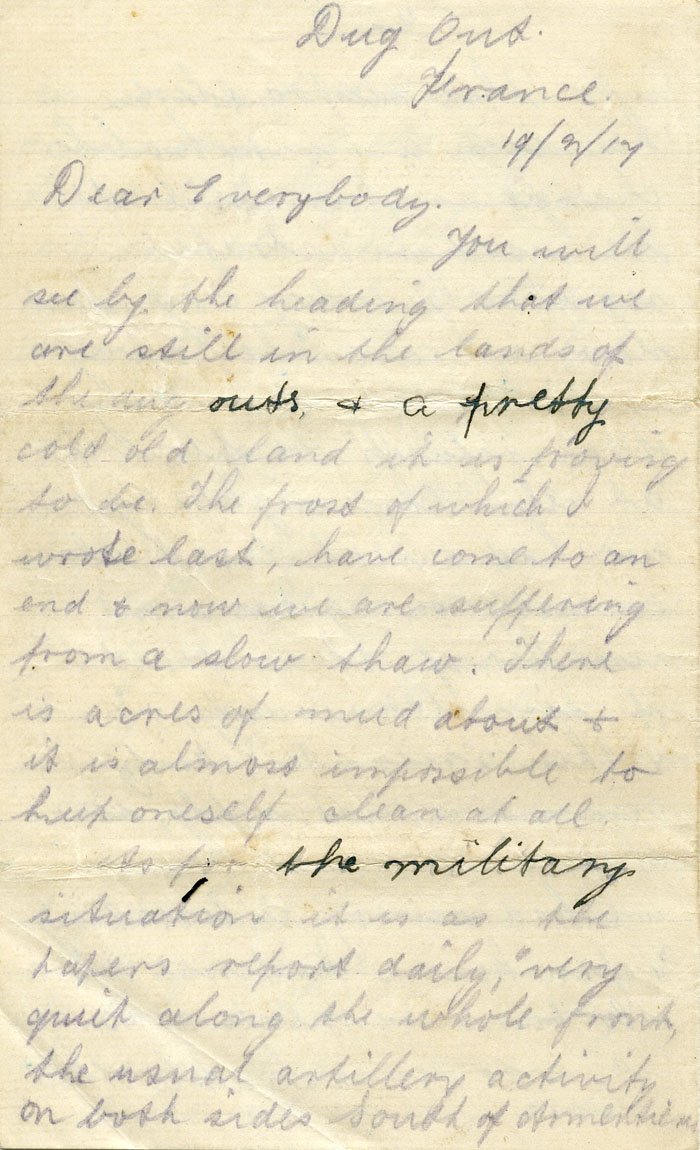 Dug Out.
France.
19/2/17
Dear Everybody.
You will
see by the heading that we
are still in the lands of
the dug outs, & a pretty
cold old land it is proving
to be. The frost of which I
wrote last, have come to an
end & now we are suffering
from a slow thaw. There
is acres of mud about &
it is almost impossible to
keep oneself clean at all.
As for the military
situation it is as the
papers report daily, "very
quiet along the whole front,
the usual artillery activity
on both sides South of Armentieres